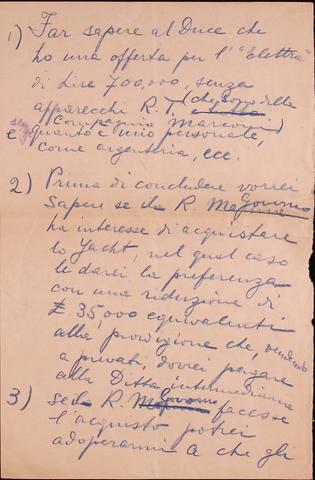 1) Far sapere al Duce che
ho una offerta per l'"Elettra"
di Lire 700,000, senza
apparecchi R.T. (che sono della
Compagnia Marconi)
e senza quanto è mio personale,
come argenteria, ecc.
2) Prima di concludere vorrei
sapere se il R. Governo
ha interesse di acquistare
lo Yacht, nel qual caso
le darei la preferenza
con una riduzione di
£ 35,000 equivalenti
alla provvigione che, vendendo
a privati, dovrei pagare
alla Ditta intermediaria
3) Se il R. Governo facesse
l'acquisto potrei
adoperarmi a che gli